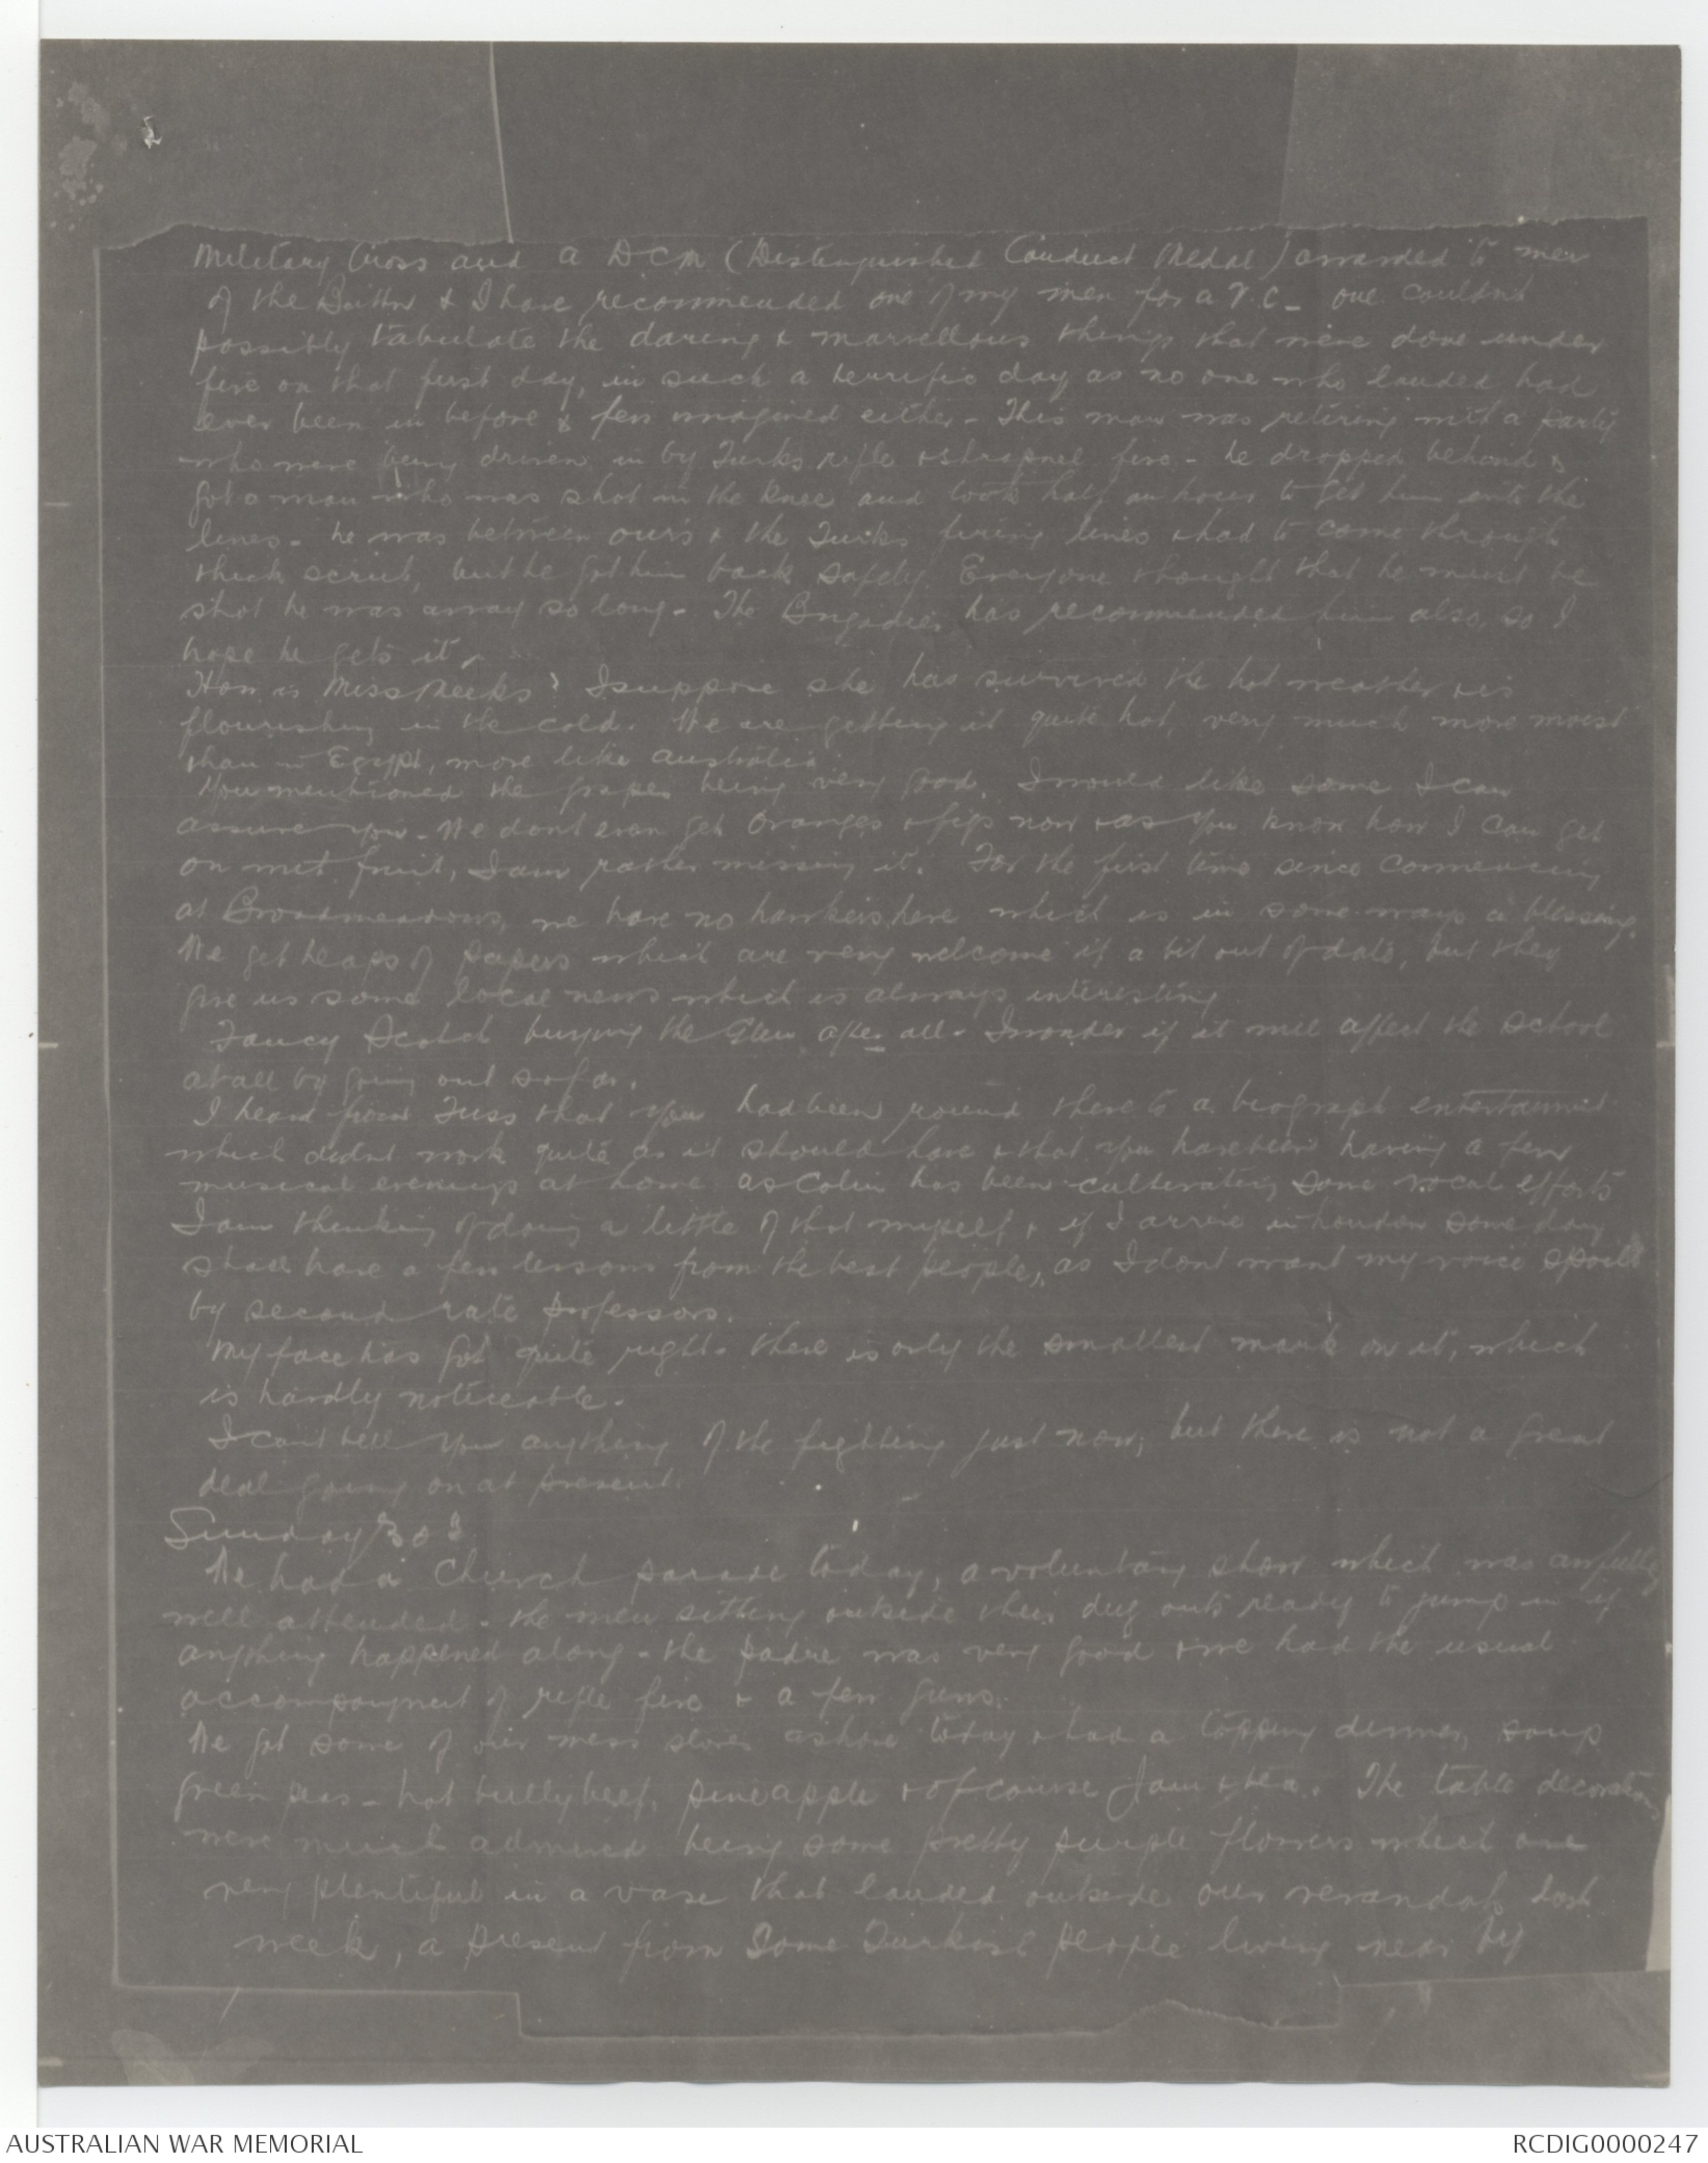 Military Cross and a DCM (Distinguished Conduct Medal) awarded to men
of the Battn & I have recommended one of my men for a V.C_ one couldnt
possibly tabulate the daring & marvellous things that were done under
fire on that first day, in such a terrific day as no one who landed had
ever been in before & few imagined either - This man was retiring with a party
who were being driven in by Turks rifle & shrapnel fire - he dropped behind &
got a man who was shot in the knee and took half an hour to get him into the
lines - he was between ours & the Turks firing lines & had to come through
thick scrub, but he got him back safely. Everyone thought that he must be
shot he was away so long - The Brigadier has recommended him also, so I
hope he gets it.
How is Miss Meeks? I suppose she has survived the hot weather & is
flourishing in the cold. We are getting it quite hot, very much more moist
than in Egypt, more like Australia.
You mentioned the grapes being very good. I would like some I can
assure you - We dont even get oranges & figs now & as you know how I can get
on wet fruit, I am rather missing it. For the first time since commencing
at Broadmeadows, we have no hawkers here which is in some ways a blessing.
We get heaps of papers which are very welcome if a bit out of date, but they
give us some local news which is always interesting
Fancy Scotch buying the Glen after all - I wonder if it will affect the school
at all by going out so far.
I heard from Tuss that you had been round there to a biograph entertainment
which didnt work quite as it should have & that you have been having a few
musical evenings at home as Colin has been cultivating some vocal efforts
I am thinking of doing a little of that myself & if I arrive in London some day
shall have a few lessons from the best people, as I dont want my voice spoilt
by second rate professors.
My face has got quite right - there is only the smallest mark on it, which
is hardly noticeable -
I cant tell you anything of the fighting just now, but there is not a great
deal going on at present.
Sunday 30th
We had a Church parade today, a voluntary show which was awfully
well attended - the men sitting outside their dug outs ready to jump in if
anything happened along - the padre was very good & we had the usual
accompanyment of rifle fire & a few guns.
We got some of our mess stores ashore today & had a topping dinner, soup
green peas - hot bully beef, pineapple & of course Jam & tea. The table decorations
were much admired being some pretty purple flowers which are
very plentiful in a vase that landed outside our verandah last
week, a present from some Turkish people living near by
AUSTRALIAN WAR MEMORIAL
RCDIG0000247